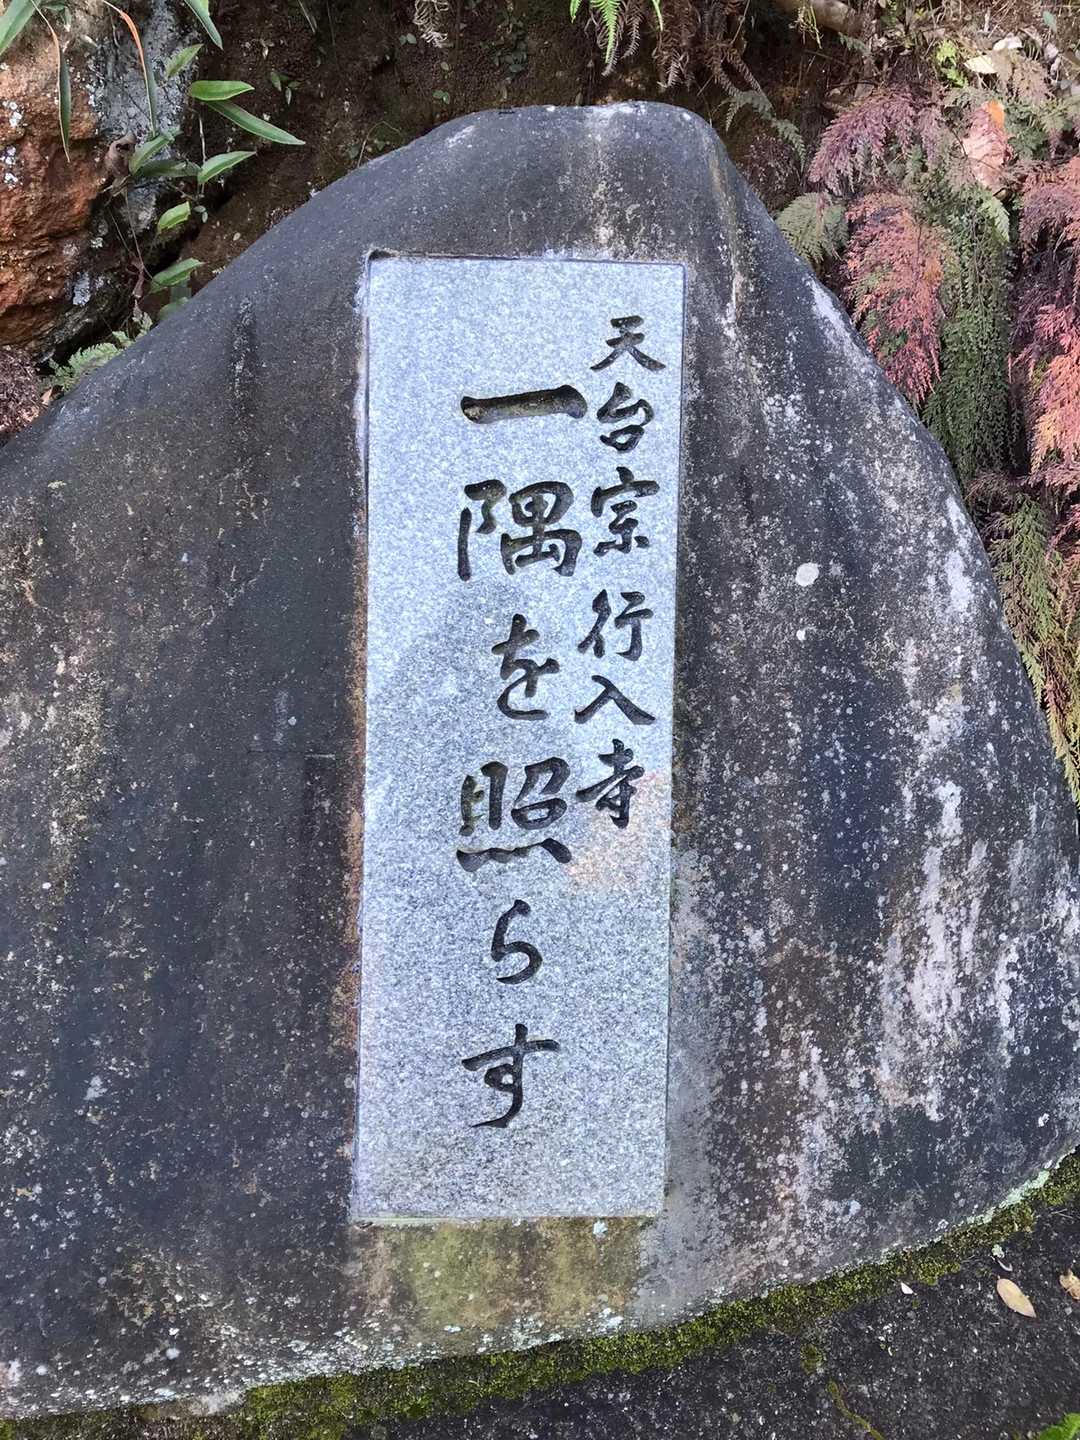 天台宗行入寺
一隅を照らす